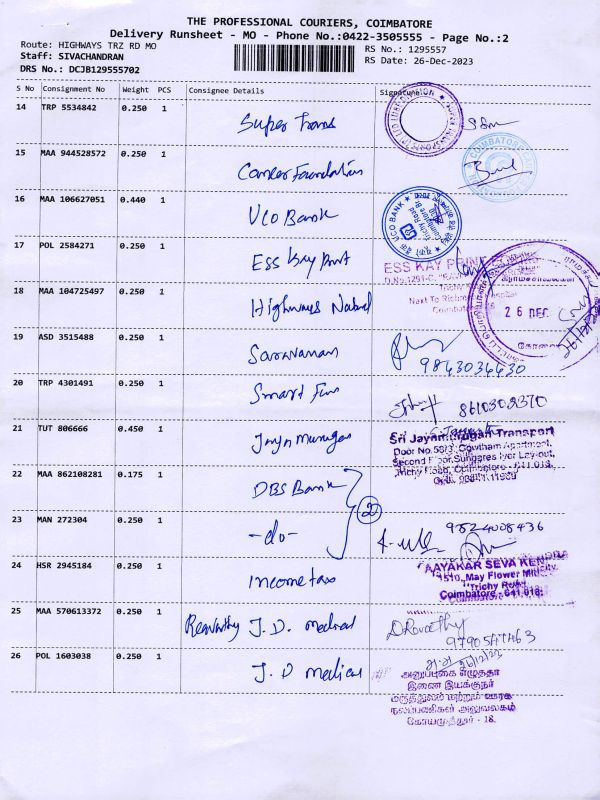 THE PROFESSIONAL COURIERS, COIMBATORE
Delivery Runsheet - MO - Phone No.:0422-3505555 - Page No.:2
Route: HIGHWAYS TRZ RD MO
RS No.: 1295557
Staff: SIVACHANDRAN
RS Date: 26-Dec-2023
DRS No.: DCJB129555702
S No Consignment No Weight PCS Consignee Details Signature
14 TRP 5534842 0.250 1 Super Trans
15 MAA 944528572 0.250 1 Career Foundation
16 MAA 106627051 0.440 1 UCO Bank
UCO BANK
17 POL 2584271 0.250 1 Ess Kay Print
ESS KAY PRINT
Next To
18 MAA 104725497 0.250 1 Highways
26 DEC
கோவை
19 ASD 3515488 0.250 1 Saravanan
9843036430
20 TRP 4301491 0.250 1 Smart
8610302370
21 TUT 806666 0.450 1
Sri Jayamurugan Transport
Door No.55/3, Gowtham Apartment,
Second Floor, Sungares Iyer Lay-out,
Trichy Road, Coimbatore - 641 018.
22 MAA 862108281 0.175 1 DBS Bank
2
23 MAN 272304 0.250 1 -do-
9824008436
24 HSR 2945184 0.250 1 Income tax
AAYAKAR SEVA KENDRA
1510, May Flower
Trichy Road
Coimbatore - 641 018.
25 MAA 570613372 0.250 1 Revathy J.D. medical
DRevathy
9790547463
26 POL 1603038 0.250 1 J.D medical
அனுப்புகை எழுத்தர்
இணை இயக்குநர்
மருத்துவம் மற்றும் ஊரக
நலப்பணிகள் அலுவலகம்
கோயமுத்தூர் - 18.